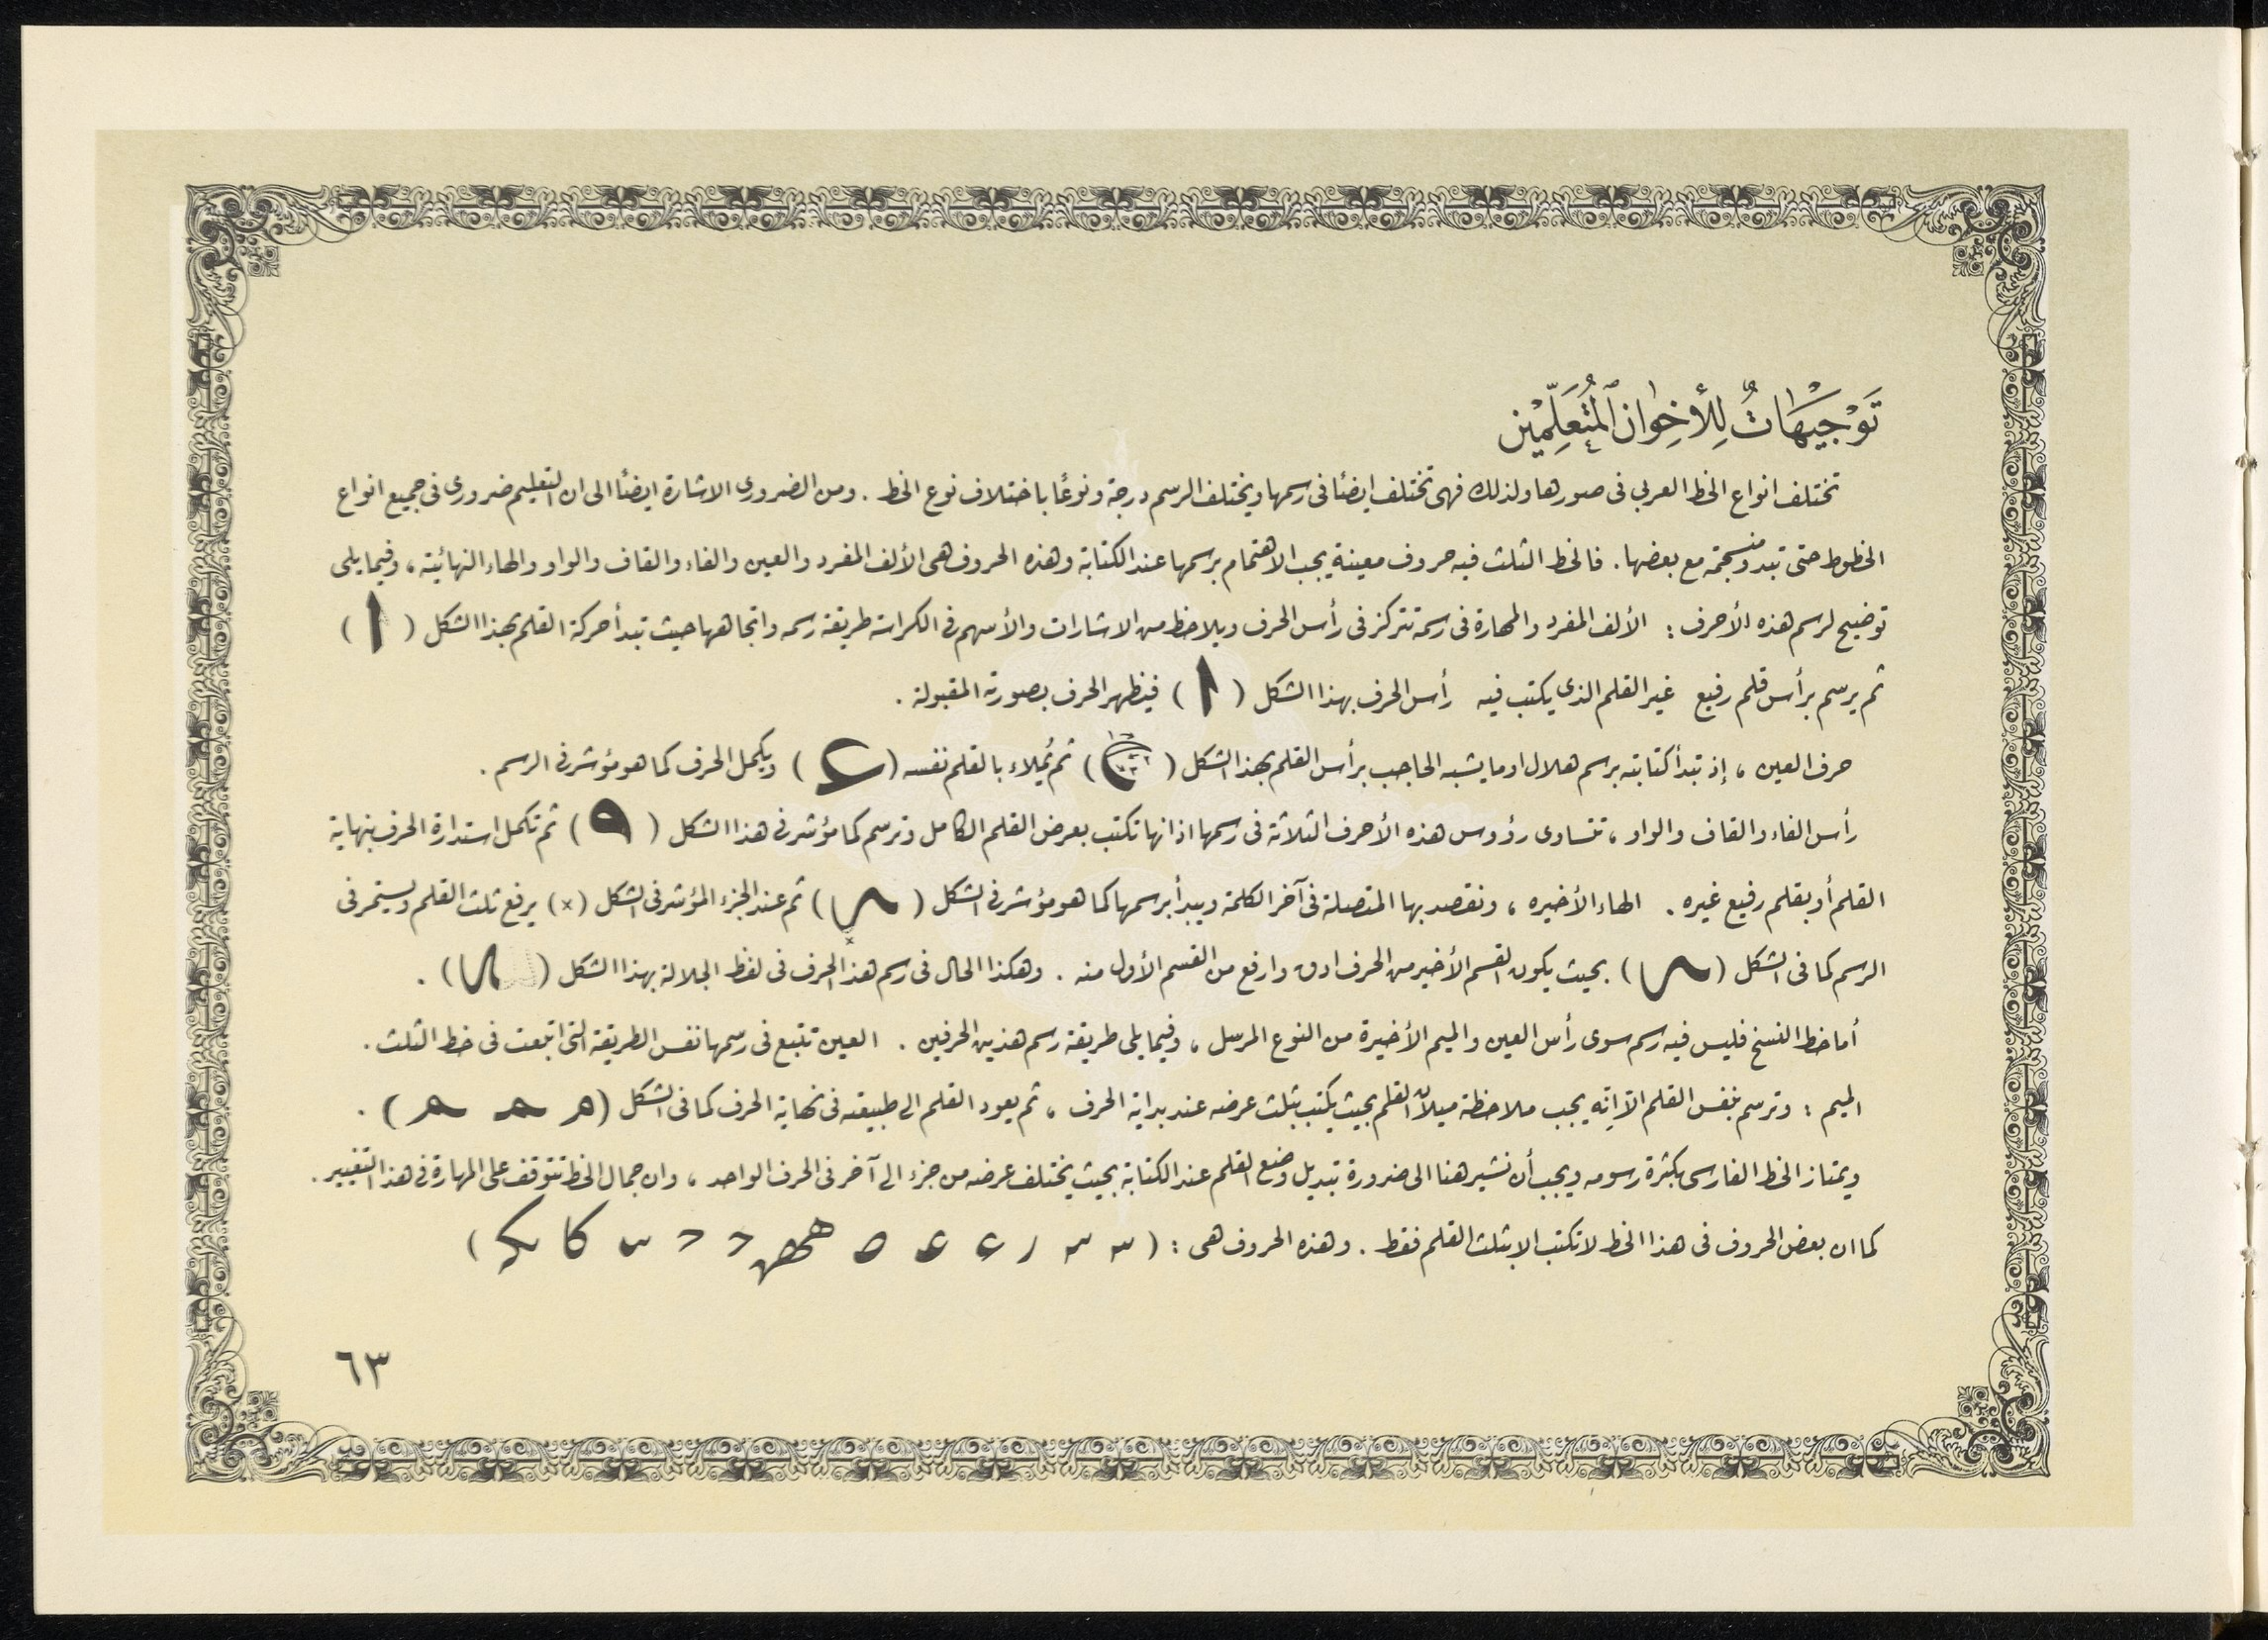 تَوْجِيْهَاتٌ لِلأَخِوَان ٱلْمُتَعَلِّمِيْن
تختلف انواع الخط العربي فى صورها ولذلك فهى تختلف ايضًا فى رسمها ويختلف الرسم درجة ونوعًا باختلاف نوع الخط . ومن الضرورى الاشارة ايضًا الى ان التعليم ضرورى فى جميع انواع
الخطوط حتى تبدو منسجمة مع بعضها . فالخط الثلث فيه حروف معينة يجب الاهتمام برسمها عند الكتابة وهذه الحروف هى الألف المفرد والعين والفاء والقاف والواو والهاء النهائية ، وفيما يلى
توضيح لرسم هذه الأحرف : الألف المفرد والمهارة فى رسمة تتركز فى رأس الحرف ويلاحظ من الاشارات والأسهم فى الكراسة طريقة رسمه واتجاهها حيث تبدأ حركة القلم بهذا الشكل ( ا )
ثم يرسم برأس قلم رفيع غير القلم الذي يكتب فيه رأس الحرف بهذا الشكل ( ا ) فيظهر الحرف بصورته المقبولة .
حرف العين ، إذ تبدأ كتابته برسم هلال او ما يشبه الحاجب برأس القلم بهذا الشكل ( ) ثم يُملاء بالقلم نفسه ( ) ويكمل الحرف كما هو مؤشر فى الرسم .
رأس الفاء والقاف والواو ، تتساوى رؤوس هذه الأحرف الثلاثة فى رسمها اذ انها تكتب بعرض القلم الكامل وترسم كما مؤشر فى هذا الشكل ( ) ثم تكمل استدارة الحرف بنهاية
القلم أو بقلم رفيع غيره . الهاء الأخيره ، ونقصد بها المتصلة فى آخر الكلمة ويبدأ برسمها كما هو مؤشر فى الشكل ( ) ثم عند الجزء المؤشر فى الشكل (×) يرفع ثلث القلم ويستمر فى
الرسم كما فى الشكل ( ) بحيث يكون القسم الأخير من الحرف ادق وارفع من القسم الأول منه . وهكذا الحال فى رسم هذا الحرف فى لفظ الجلالة بهذا الشكل ( ) .
أما خط النسخ فليس فيه رسم سوى رأس العين والميم الأخيرة من النوع المرسل ، وفيما يلى طريقة رسم هذين الحرفين . العين تتبع فى رسمها نفس الطريقة التى اتبعت فى خط الثلث .
الميم : وترسم بنفس القلم الاّ انّه يجب ملاحظة ميلان القلم بحيث يكتب بثلث عرضه عند بداية الحرف ، ثم يعود القلم الى طبيعته فى نهاية الحرف كما فى الشكل ( ) .
ويمتاز الخط الفارسى بكثرة رسومه ويجب أن نشير هنا الى ضرورة تبديل وضع القلم عند الكتابة بحيث يختلف عرضه من جزء الى آخر فى الحرف الواحد ، وان جمال الخط تتوقف على المهارة فى هذا التغيير .
كما ان بعض الحروف فى هذا الخط لا تكتب الا بثلث القلم فقط . وهذه الحروف هى : ( )
٦٣